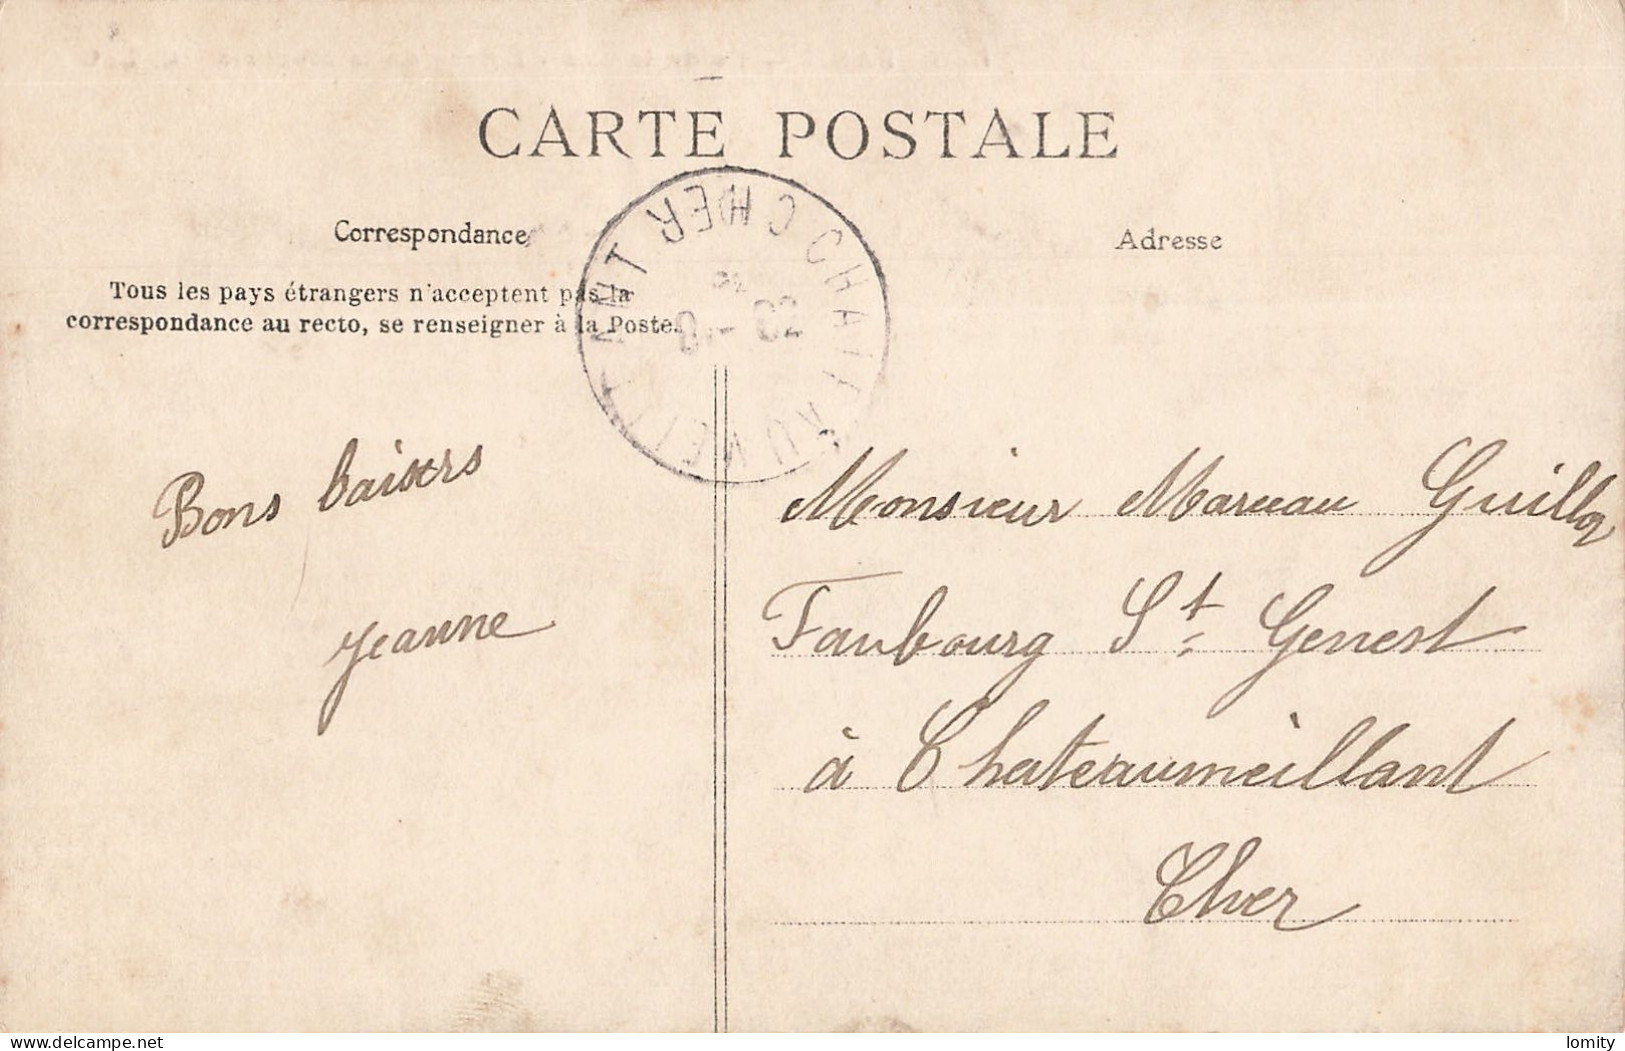 CARTE POSTALE
Correspondance
Tous les pays étrangers n'acceptent pas la
correspondance au recto, se renseigner à la Poste.
Adresse
CHATEAUMEILLANT
CHER
Bons baisers
Jeanne
Monsieur Marceau
Faubourg St Genest
à Chateaumeillant
Cher
delcampe.net
lomity